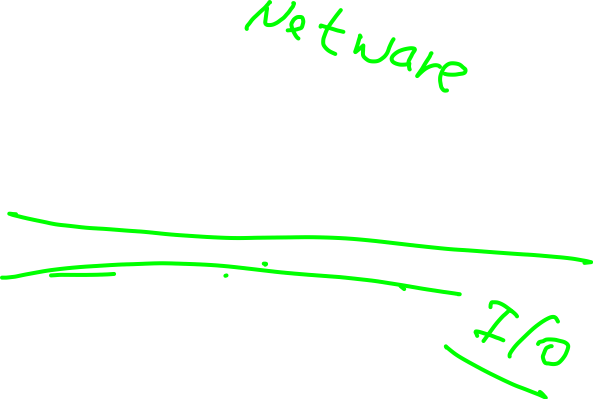 Netware
I/O